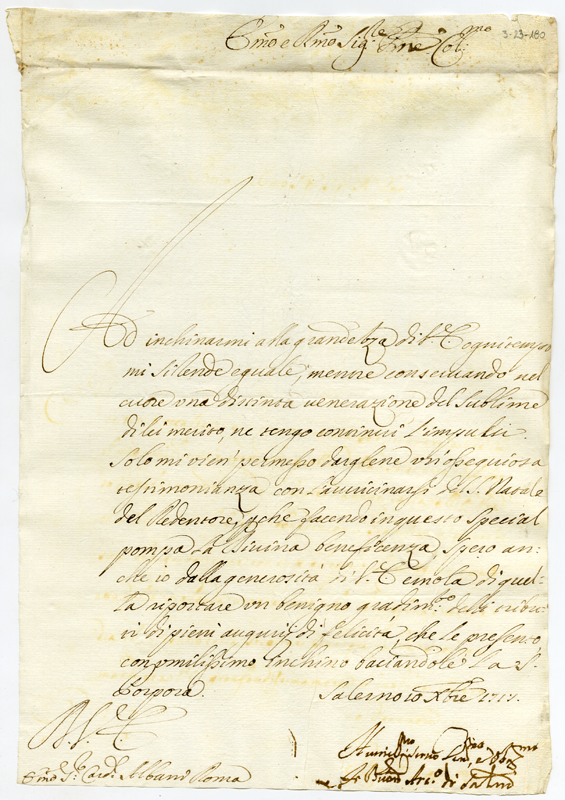 Emo e Rmo Sigr Pne Colmo
3-23-180
Ad inchinarmi alla grandezza di V. E. ogni tempo
mi si rende eguale, mentre conservando nel
cuore una distinta venerazione del sublime
di lei merito, ne tengo continui l'impulsi.
Solo mi vien permesso dargliene un ossequiosa
testimonianza con l'avvicinarsi del S. Natale
del Redentore, perche facendo in questo special
pompa la Divina beneficenza spero an:
che io dalla generosità di V. E. emola di quel:
la riportare un benigno gradimto delli tribu:
ti di pieni augurij di felicità, che le presento
con umilissimo inchino baciandole la S.
Porpora. Salerno 10 Xbre 1717.
D. V. E.
Emo Sr Card. Albani Roma
Humilissimo
di Salno